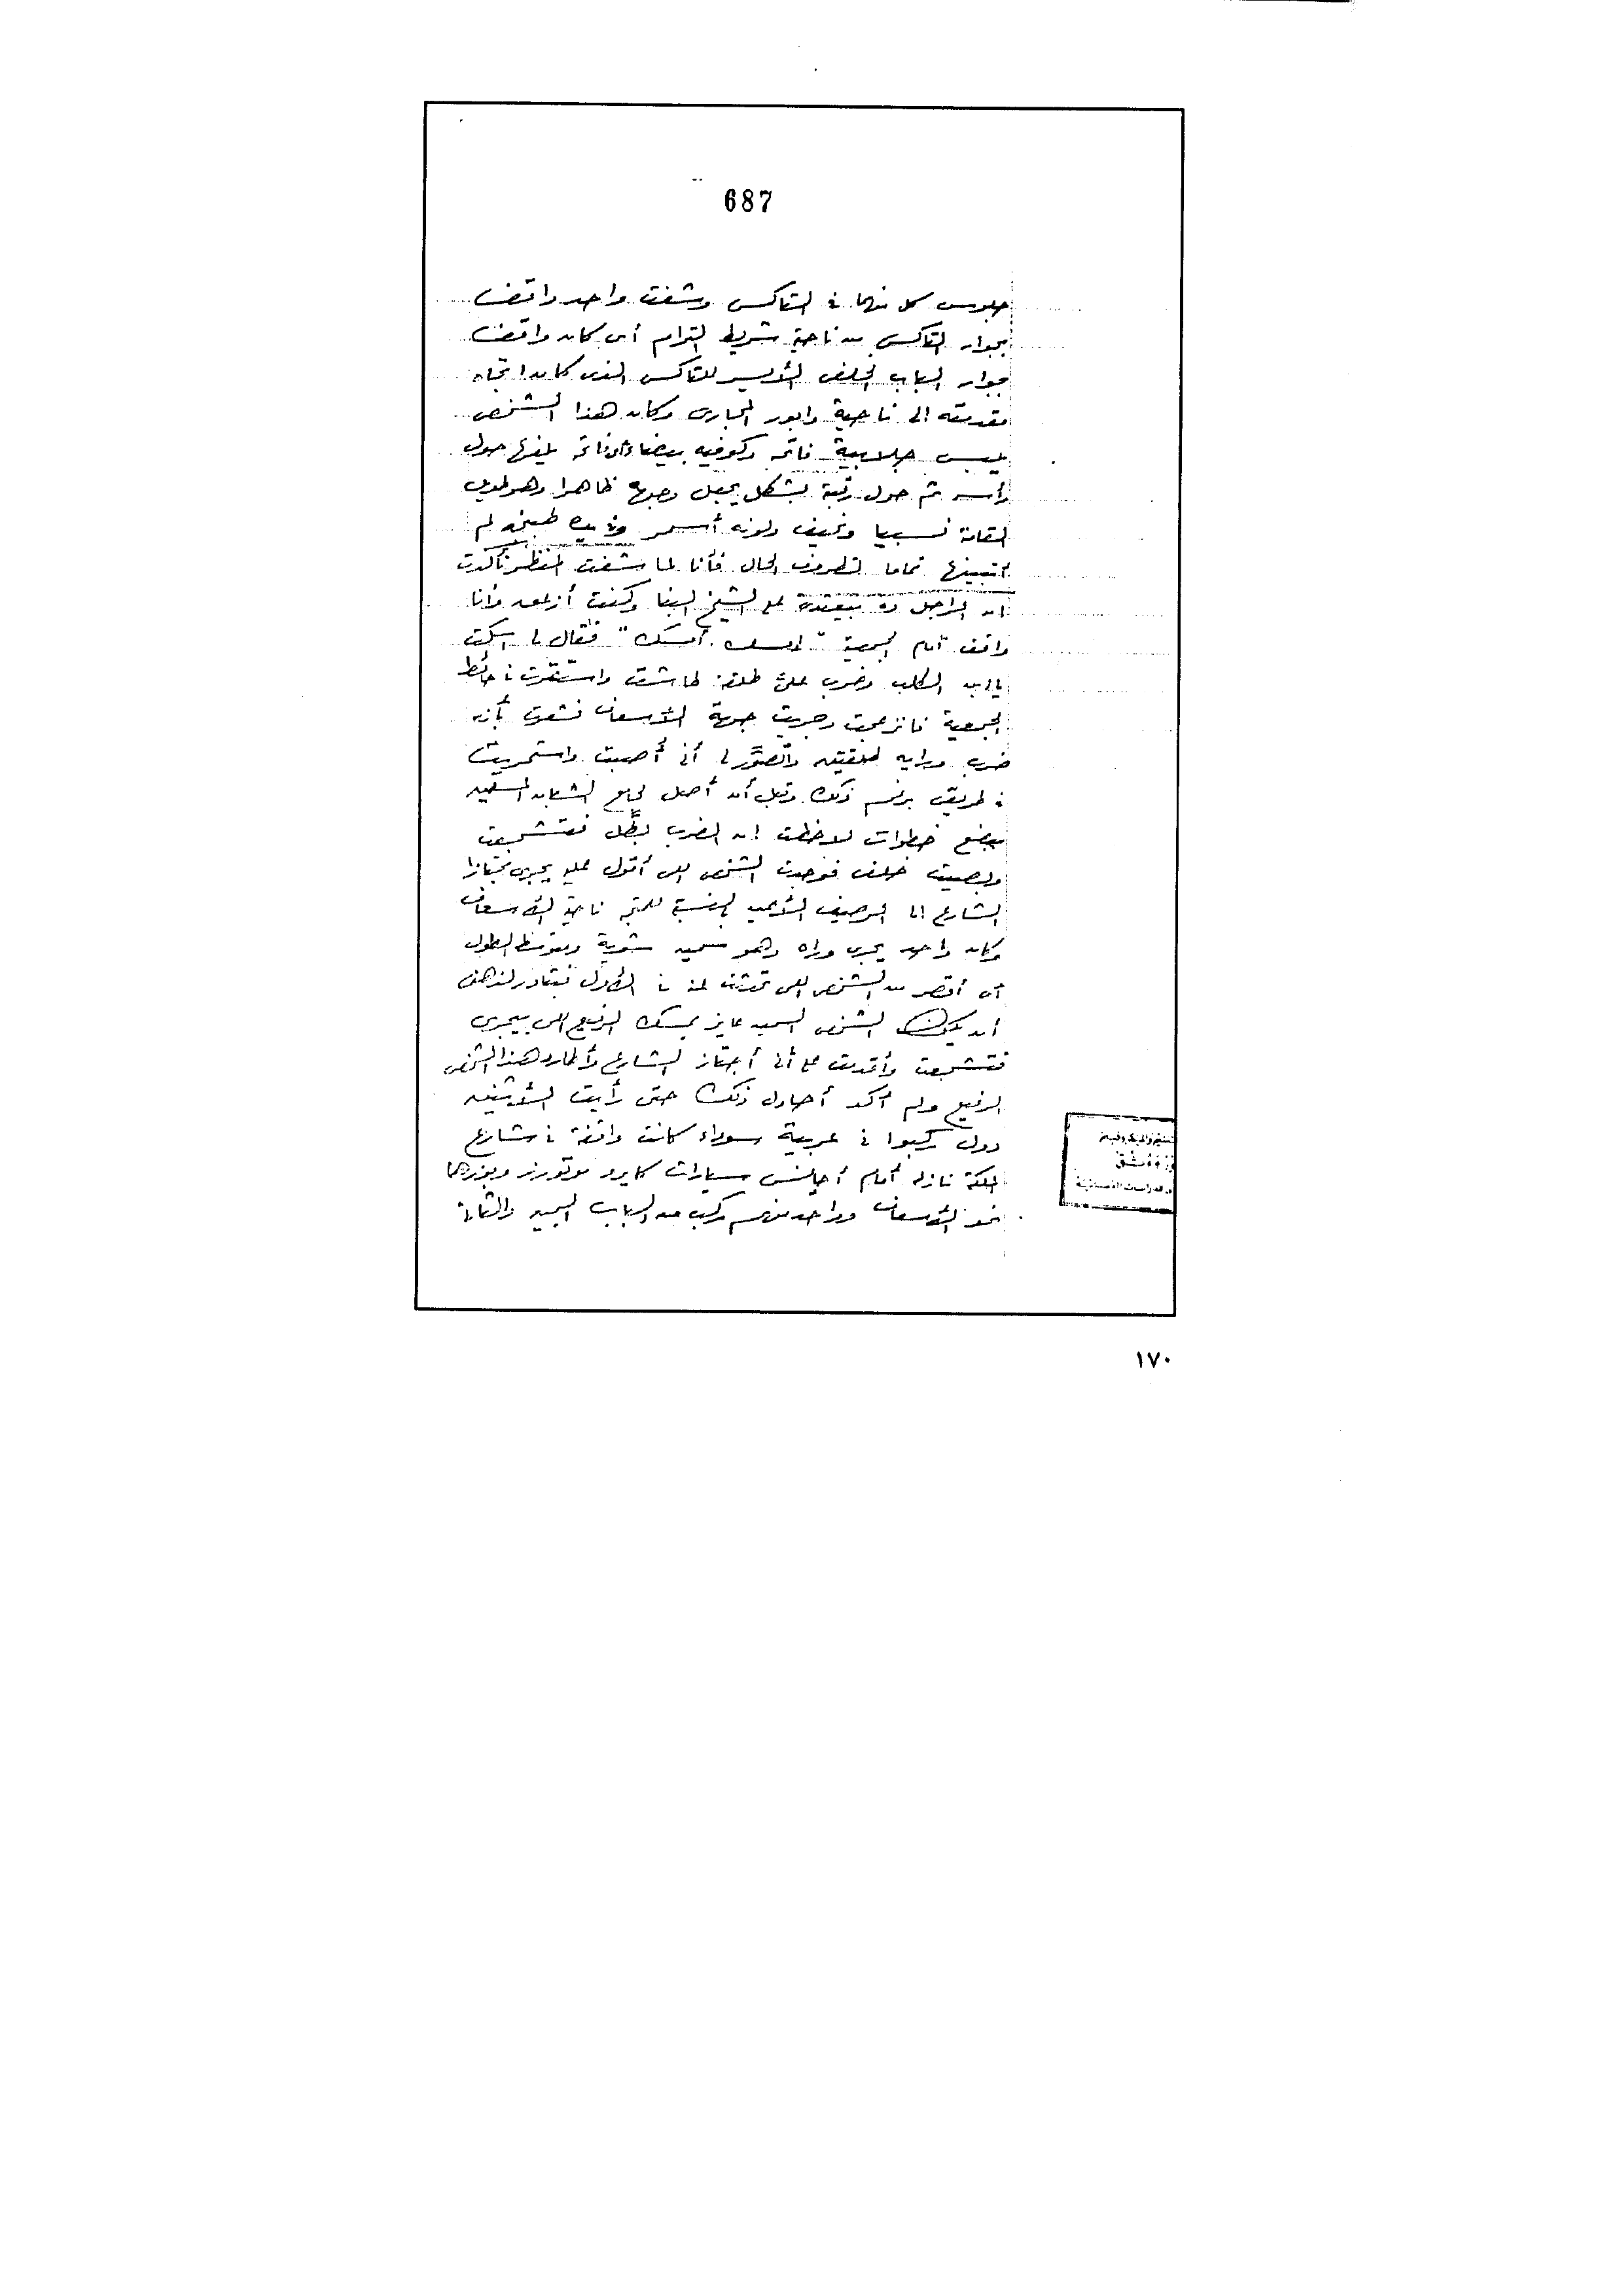 687
جلوس كل منهما فى التاكس وشفت واحد واقف
بجوار التاكس من ناحية شريط الترام أى كان واقف
بجوار الباب الخلفى الأيسر للتاكس الذى كان اتجاه
مقدمته الى ناحية وابور المجارى وكان هذا الشخص
يلبس جلابية فاتحه وكوفيه بيضاء أو فاتحه يلفها حول
رأسه ثم حول رقبته بشكل يجعل وجهه ظاهرا وهو طويل
القامة نسبيا ونحيف ولونه أسمر وفى يده طبنجه لم
أتبينها تماما لظروف الحال فأنا لما شفت المنظر تأكدت
ان الراجل ده بيعتدى على الشيخ البنا وكنت أزعق وأنا
واقف أمام الجمعية " امسك . أمسك " فقال لى اسكت
يا ابن الكلب وضرب علىّ طلقة طاشت واستقرت فى حائط
الجمعية فانزعجت وجريت جهة الأسعاف فشعرت بأنه
ضرب ورايه طلقتين واتصوَّر لى أنى أصبت واستمريت
فى طريقى برغم ذلك وقبل أن أصل لجامع الشبان المسلمين
ببضع خطوات لاحظت ان الضرب بطَّل فتشجعت
وبصيت خلفى فوجدت الشخص اللى أقول عليه يجرى مجتازا
الشارع الى الرصيف الأيمن بالنسبة للمتجه ناحية الأسعاف
وكان واحد يجرى وراه وهو سمين شوية ومتوسط الطول
أى أقصر من الشخص اللى تحدثت عنه فى الأول فتبادر لذهنى
أن يكون الشخص السمين عايز يمسك الرفيع اللى بيجرى
فتشجعت وأقدمت على أنى أجتاز الشارع وأطارد هذا الشخص
الرفيع ولم أكد أحاول ذلك حتى رأيت الأثنين
دول ركبوا فى عربية سوداء كانت واقفة فى شارع
الملكة نازلى أمام أجانس سيارات كايرو موتورز وبوزها
نحو الأسعاف وواحد منهم ركب من الباب اليمين والثانى
١٧٠